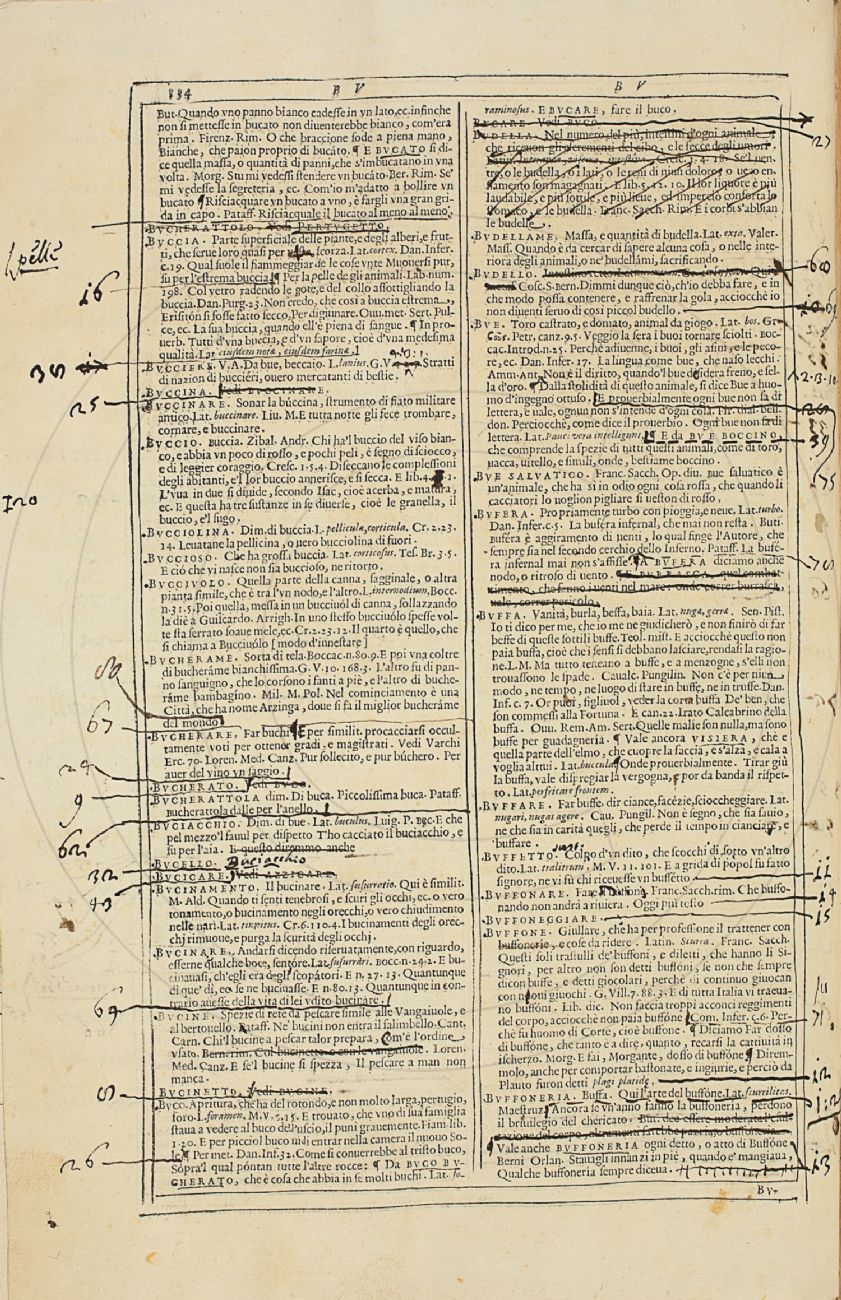 134 B V B V
But. Quando vno panno bianco cadesse in vn lato, ec. infinche
non si mettesse in bucato non diuenterebbe bianco, com'era
prima. Firenz. Rim. O che braccione sode a piena mano,
Bianche, che paion proprio di bucáto. ¶ E BVCATO si di-
ce quella massa, o quantità di panni, che s'imbucatano in vna
volta. Morg. Stu mi vedessi stendere vn bucáto. Ber. Rim. Se'
mi vedesse la segreteria, ec. Com'io m'adatto a bollire vn
bucato ¶ Risciacquare vn bucato a vno, è fargli vna gran gri-
da in capo. Pataff. Risciacquale il bucato al meno al meno.
BVCHERATTOLO. Vedi PERTVGETTO.
BVCCIA. Parte superficiale delle piante, e degli alberi, e frut-
ti, che serue loro quasi per scorza. Lat. cortex. Dan. Infer.
c. 19. Qual suole il fiammeggiar de le cose vnte Muouersi pur,
su per l'estrema buccia. ¶ Per la pelle degli animali. Lab. num.
198. Col vetro radendo le gote, e del collo assottigliando la
buccia. Dan. Purg. 23. Non credo, che così a buccia estrema,
Erisitón si fosse fatto secco, Per digiunare. Ouu. met. Sert. Pul-
ce, ec. La sua buccia, quando ell'è piena di sangue. ¶ In pro-
uerb. Tutti d'vna buccia, e d'vn sapore, cioè d'vna medesima
qualità. Lat. eiusdem notæ, eiusdem farinæ.
BVCCIERE. V. A. Da bue, beccaio. L. lanius. G. V. Stratti
di nazion di buccieri, ouero mercatanti di bestie.
BVCCINA. Vedi BVCCINARE.
BVCCINARE. Sonar la búccina, strumento di fiato militare
antico. Lat. buccinare. Liu. M. E tutta notte gli fece trombare,
cornare, e buccinare.
BVCCIO. Buccia. Zibal. Andr. Chi ha'l buccio del viso bian-
co, e abbia vn poco di rosso, e pochi peli, è segno di sciocco,
e di leggier coraggio. Cresc. 1. 5. 4. Diseccano le complessioni
degli abitanti, e'l lor buccio annerisce, e si secca. E lib. 4.
L'vua in due si diuide, secondo Isac, cioè acerba, e matura,
ec. E questa ha tre sustanze in se diuerse, cioè le granella, il
buccio, e'l sugo.
BVCCIOLINA. Dim. di buccia. L. pellicula, corticula. Cr. 2. 23.
14. Leuatane la pellicina, o uero bucciolina di fuori.
BVCCIOSO. Che ha grossa buccia. Lat. corticosus. Tes. Br. 3. 5.
E ciò che vi nasce non sia buccioso, ne ritorto.
BVCCIVOLO. Quella parte della canna, sagginale, o altra
pianta simile, che è tra l'vn nodo, e l'altro. L. internodium. Bocc.
n. 31. 5. Poi quella, messa in un bucciuól di canna, sollazzando
la diè a Guilcardo. Arrigh. In uno stesso bucciuólo spesse vol-
te sta serrato soaue mele, ec. Cr. 2. 23. 12. Il quarto è quello, che
si chiama a Bucciuólo [modo d'innestare]
BVCHERAME. Sorta di tela. Boccac. n. 80. 9. E ppi vna coltre
di bucheráme bianchissima. G. V. 10. 168. 3. L'altro fu di pan-
no sanguigno, che lo corsono i fanti a piè, e l'altro di buche-
ráme bambagino. Mil. M. Pol. Nel cominciamento è una
Città, che ha nome Arzinga, doue si fa il miglior bucheráme
del mondo
BVCHERARE. Far buchi. ¶ E per similit. procacciarsi occul-
tamente voti per ottener gradi, e magistrati. Vedi Varchi
Erc. 70. Loren. Med. Canz. Pur sollecito, e pur búchero. Per
auer del vino vn saggio.
BVCHERATO. Vedi BVCO.
BVCHERATTOLA dim. Di buca. Piccolissima buca. Pataff.
Bucherattola dalle per l'anello.
BVCIACCHIO. Dim. di bue. Lat. buculus. Luig. P. BEC. E che
pel mezzo l'auuil per dispetto T'ho cacciato il buciacchio, e
su per l'aia. E questo diremmo anche
Buciacchio
BVCELLO.
BVCICARE. Vedi AZZICARE.
BVCINAMENTO. Il bucinare. Lat. susurratio. Qui è similit.
M. Ald. Quando ti senti tenebrosi, e scuri gli occhi, ec. o vero
tonamento, o bucinamento negli orecchi, o vero chiudimento
nelle nari. Lat. tinnitus. Cr. 6. 110. 4. I bucinamenti degli orec-
chi rimuoue, e purga la scurità degli occhj.
BVCINARE. Andarsi dicendo riseruatamente, con riguardo,
esserne qualche boce, sentóre. Lat. susurrari. Bocc. n. 24. 2. E bu-
cinauasi, ch'egli era degli scopatori. E n. 27. 13. Quantunque
di que' dì, ec. se ne bucinasse. E n. 80. 13. Quantunque in con-
trario auesse della vita di lei vdito bucinare.
BVCINE. Spezie di rete da pescare simile alle Vangaiuole, e
al bertouello. Pataff. Ne' bucini non entra il salimbello. Cant.
Carn. Chi'l bucine a pescar talor prepara, Com'è l'ordine,
vsato. Bern. rim. Col bucinetto, o con le vangaiuole. Loren.
Med. Canz. E se'l bucine si spezza, Il pescare a man non
manca.
BVCINETTO. Vedi BVCINE.
BVCO. Apritura, che ha del rotondo, e non molto larga, pertugio,
foro. L. foramen. M. V. 2. 15. E trouato, che vno di sua famiglia
staua a vedere al buco dell'uscio, il punì grauemente. Fiam. lib.
1. 20. E per picciol buco uidi entrar nella camera il nuouo So-
le. ¶ Per met. Dan. Inf. 32. Come si conuerrebbe al tristo buco,
Sopra'l qual póntan tutte l'altre rocce: ¶ Da BVCO BV-
GHERATO, che è cosa che abbia in se molti buchi. Lat. fo-
raminosus. E BVCARE, fare il buco.
BVCARE. Vedi BVCO.
BVDELLA. Nel numero del più, intestini d'ogni animale,
che riceuon gli escrementi del cibo, e le fecce degli umori.
Cresc. 3. 4. 18. Se'l uen-
tre, o le budella, o i lati, o le reni
laudabile, e più sottile, e più lieue, ed imperciò conforta lo
stomaco, e le budella. Franc. Sacch. Rim. E i corbi s'abbian
le budelle.
BVDELLAME. Massa, e quantità di budella. Lat. exta. Valer.
Mass. Quando è da cercar di sapere alcuna cosa, o nelle inte-
riora degli animali, o ne' budellámi, sacrificando.
BVDELLO.
Cosc. S. Bern. Dimmi dunque ciò, ch'io debba fare, e in
che modo possa contenere, e raffrenar la gola, acciocchè io
non diuenti seruo di così piccol budello.
BVE. Toro castrato, e domato, animal da giogo. Lat. bos. Gr.
Petr. canz. 9. 5. Veggio la sera i buoi tornare sciolti. Boc-
cac. Introd. n. 25. Perchè adiuenne, i buoi, gli asini, e le peco-
re, ec. Dan. Infer. 17. La lingua come bue, che naso lecchi.
Amm. Ant. Non è il diritto, quando'l bue desidera freno, e sel-
la d'oro. ¶ Dalla stolidità di questo animale, si dice Bue a huo-
mo d'ingegno ottuso. E prouerbialmente ogni bue non sa di
lettera, e uale, ognun non s'intende d'ogni cosa. Fir. dial. bell.
don. Perciocchè, come dice il prouerbio. Ogni bue non sa di
lettera. Lat. Pauci vera intellegunt. ¶ E da BVE BOCCINO,
che comprende la spezie di tutti questi animali, come di toro,
uacca, uitello, e simili, onde, bestiame boccino.
BVE SALVATICO. Franc. Sacch. Op. diu. Bue saluatico è
un'animale, che ha sì in odio ogni cosa rossa, che quando li
cacciatori lo uoglion pigliare si ueston di rosso.
BVFERA. Propriamente turbo con pioggia, e neue. Lat. turbo.
Dan. Infer. c. 5. La bufera infernal, che mai non resta. Buti.
Bufera è aggiramento di uenti, lo qual finge l'Autore, che
sempre sia nel secondo cerchio dello Inferno. Pataff. La bufe-
ra infernal mai non s'affisse. ¶ A BVFERA diciamo anche
nodo, o ritroso di uento.
BVFFA. Vanità, burla, beffa, baia. Lat. nugæ, gerræ. Sen. Pist.
Io ti dico per me, che io me ne giudicherò, e non finirò di far
beffe di queste sottili buffe. Teol. mist. E acciocchè questo non
paia buffa, cioè che i sensi si debbano lasciare, rendasi la ragio-
ne. L. M. Ma tutto teneano a buffe, e a menzogne, s'elli non
trouassono le spade. Caualc. Pungilin. Non c'è per niun
modo, ne tempo, ne luogo di stare in buffe, ne in truffe. Dan.
Inf. c. 7. Or puoi, figliuol, veder la corta buffa De' ben, che
son commessi alla Fortuna. E can. 22. Irato Calcabrina della
buffa. Ouu. Rem. Am. Sert. Quelle malie son nulla, ma sono
buffe per guadagneria. ¶ Vale ancora VISIERA, che è
quella parte dell'elmo, che cuopre la faccia, e s'alza, e cala a
voglia altrui. Lat. buccula. ¶ Onde prouerbialmente. Tirar giù
la buffa, vale dispregiar la vergogna, e por da banda il rispet-
to. Lat. perfricare frontem.
BVFFARE. Far buffe, dir ciance, facézie, scioccheggiare. Lat.
nugari, nugas agere. Cau. Pungil. Non è segno, che sia sauio,
ne che sia in carità quegli, che perde il tempo in cianciare, e'
buffare.
BVFFETTO. Colpo d'vn dito, che scocchi di sotto vn'altro
dito. Lat. talitrum. M. V. 11. 101. E a grida di popol fu fatto
signore, ne vi fù chi riceuesse vn buffetto.
BVFFONARE. Franc. Sacch. rim. Che buffo-
nando non andrà a riuiera. Oggi più testo
BVFFONEGGIARE.
BVFFONE. Giullare, che ha per professione il trattener con
buffonerie, e cose da ridere. Latin. Scurra. Franc. Sacch.
Questi soli trastulli de' buffoni, e diletti, che hanno li Si-
gnori, per altro non son detti buffóni, se non che sempre
dicon buffe, e detti giocolari, perchè di continuo giuocan
con nuoui giuochi. G. Vill. 7. 88. 3. E di tutta Italia vi traeua-
no buffóni. Lib. dic. Non faccia troppi acconci reggimenti
del corpo, acciocchè non paia buffóne. Com. Infer. c. 6. Per-
chè fu huomo di Corte, cioè buffone. ¶ Diciamo Far dosso
di buffóne, che tanto è a dire, quanto, recarsi la cattiuità in
ischerzo. Morg. E fai, Morgante, dosso di buffóne. ¶ Direm-
molo, anche per comportar bastonate, e ingiurie, e perciò da
Plauto furon detti plagi patidæ.
BVFFONERIA. Buffa. Qui l'arte del buffóne. Lat. scurrilitas.
Maestruz. Ancora se vn'anno fanno la buffoneria, perdono
il briuilegio del chericato.
¶ Vale anche BVFFONERIA ogni detto, o atto di Buffóne.
Berni Orlan. Stauagli innanzi in piè, quando e' mangiaua,
Qual che buffoneria sempre diceua.
BV-